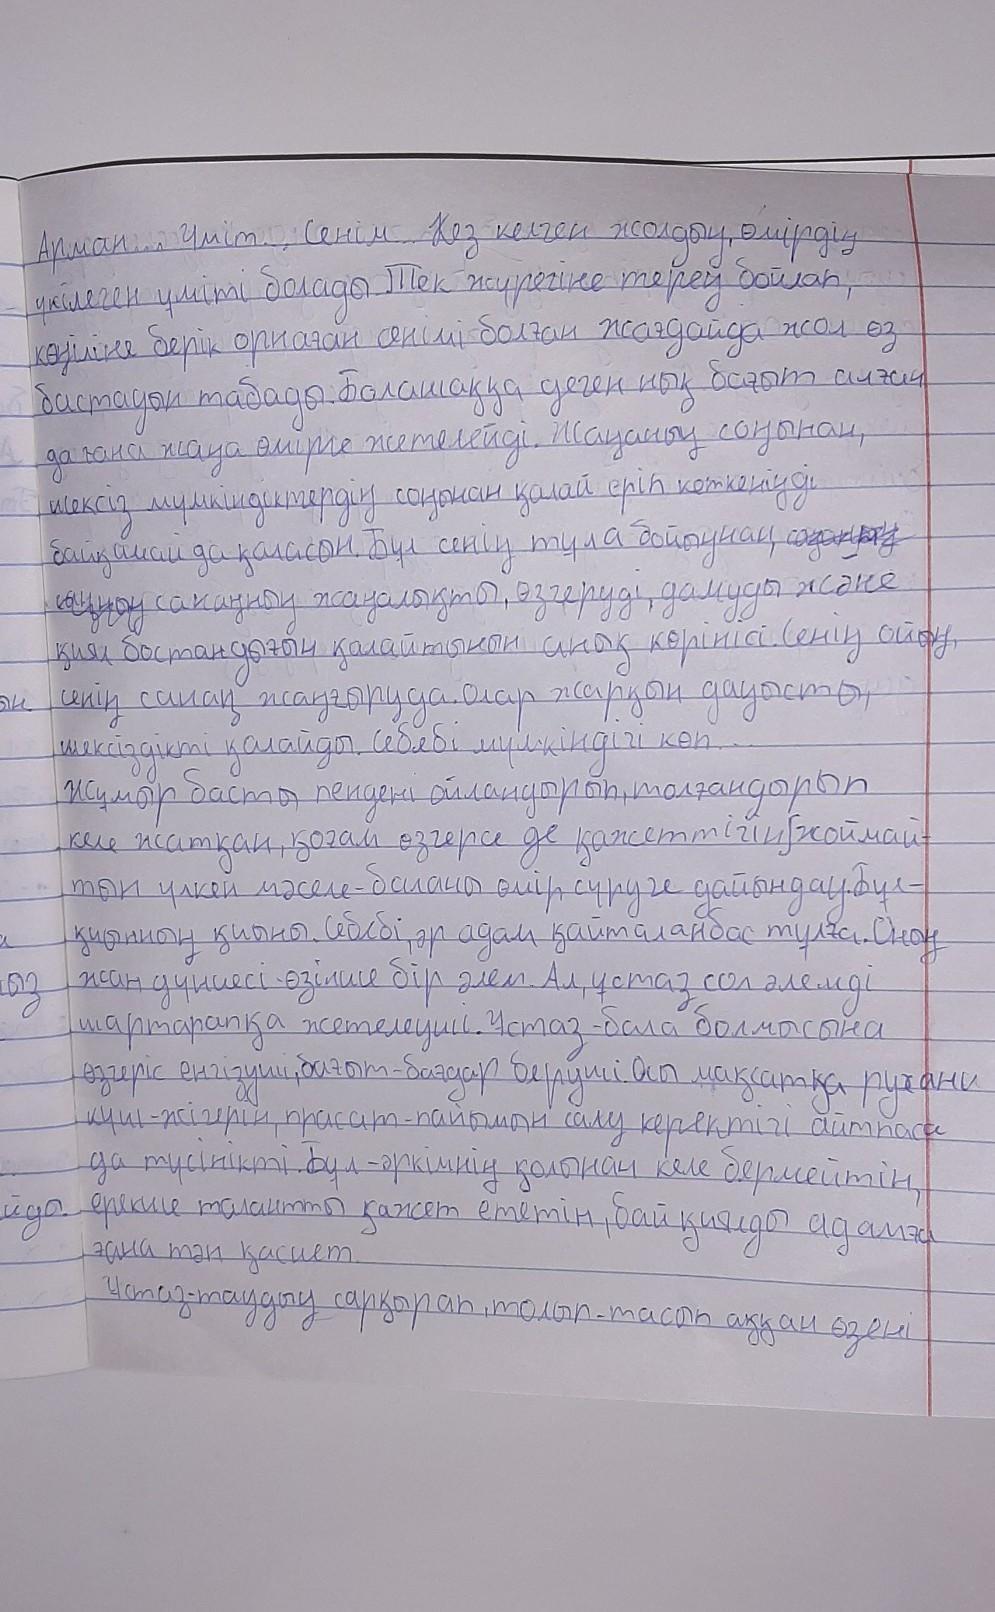 Арман... Үміт... Сенім... Кез келген жолдың, өмірдің
үкілеген үміті болады. Тек жүрегіне терең бойлап,
көңіліне берік орнаған сенімі болған жағдайда жол өз
бастауын табады. Болашаққа деген нық бағыт алған
да ғана жаңа өмірге жетелейді. Жаңаның соңынан,
шексіз мүмкіндіктердің соңынан қалай еріп кеткеніңді
байқамай да қаласын. Бұл сенің тұла бойыңнан,
санаңның жаңалықты, өзгеруді, дамуды және
қиял бостандығын қалайтынын анық көрінісі. Сенің ойың,
ын сенің санаң жаңғыруда. Олар жарқын дауысты,
шексіздікті қалайды. Себебі мүмкіндігі көп...
Жұмыр басты пендені ойландырып, толғандырып
келе жатқан, қоғам өзгерсе де қажеттігін жоймай-
тын үлкен мәселе-баланы өмір сүруге дайындау. Бұл-
қиынның қиыны. Себебі, әр адам қайталанбас тұлға. Оның
ыз жан дүниесі-өзінше бір әлем. Ал, ұстаз сол әлемді
шартарапқа жетелеуші. Ұстаз-бала болмысына
өзгеріс енгізуші, бағыт-бағдар беруші. Осы мақсатқа рухани
күш-жігерін, парасат-пайымын салу керектігі айтпаса
да түсінікті. Бұл-әркімнің қолынан келе бермейтін,
йды. ерекше талантты қажет ететін, бай қиялды адамға
ғана тән қасиет.
Ұстаз-таудың сарқырап, толып-тасып аққан өзені